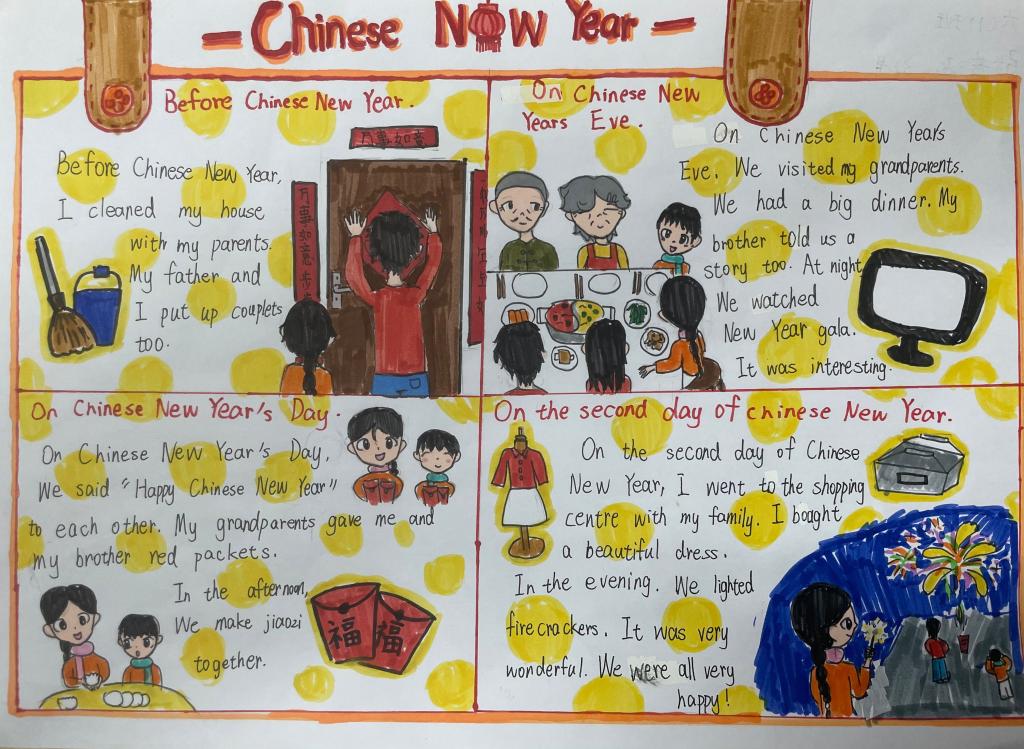 — Chinese New Year —
Before Chinese New Year.
Before Chinese New Year,
I cleaned my house
with my parents.
My father and
I put up couplets
too.
万事如意
万事如意步步
On Chinese New
Years Eve.
On Chinese New Year's
Eve. We visited my grandparents.
We had a big dinner. My
brother told us a
story too. At night
We watched
New Year gala.
It was interesting.
On Chinese New Year's Day.
On Chinese New Year's Day,
We said "Happy Chinese New Year"
to each other. My grandparents gave me and
my brother red packets.
In the afternoon,
We make jiaozi
together.
福 福
On the second day of chinese New Year.
On the second day of Chinese
New Year, I went to the shopping
centre with my family. I bought
a beautiful dress.
In the evening. We lighted
firecrackers. It was very
wonderful. We were all very
happy!